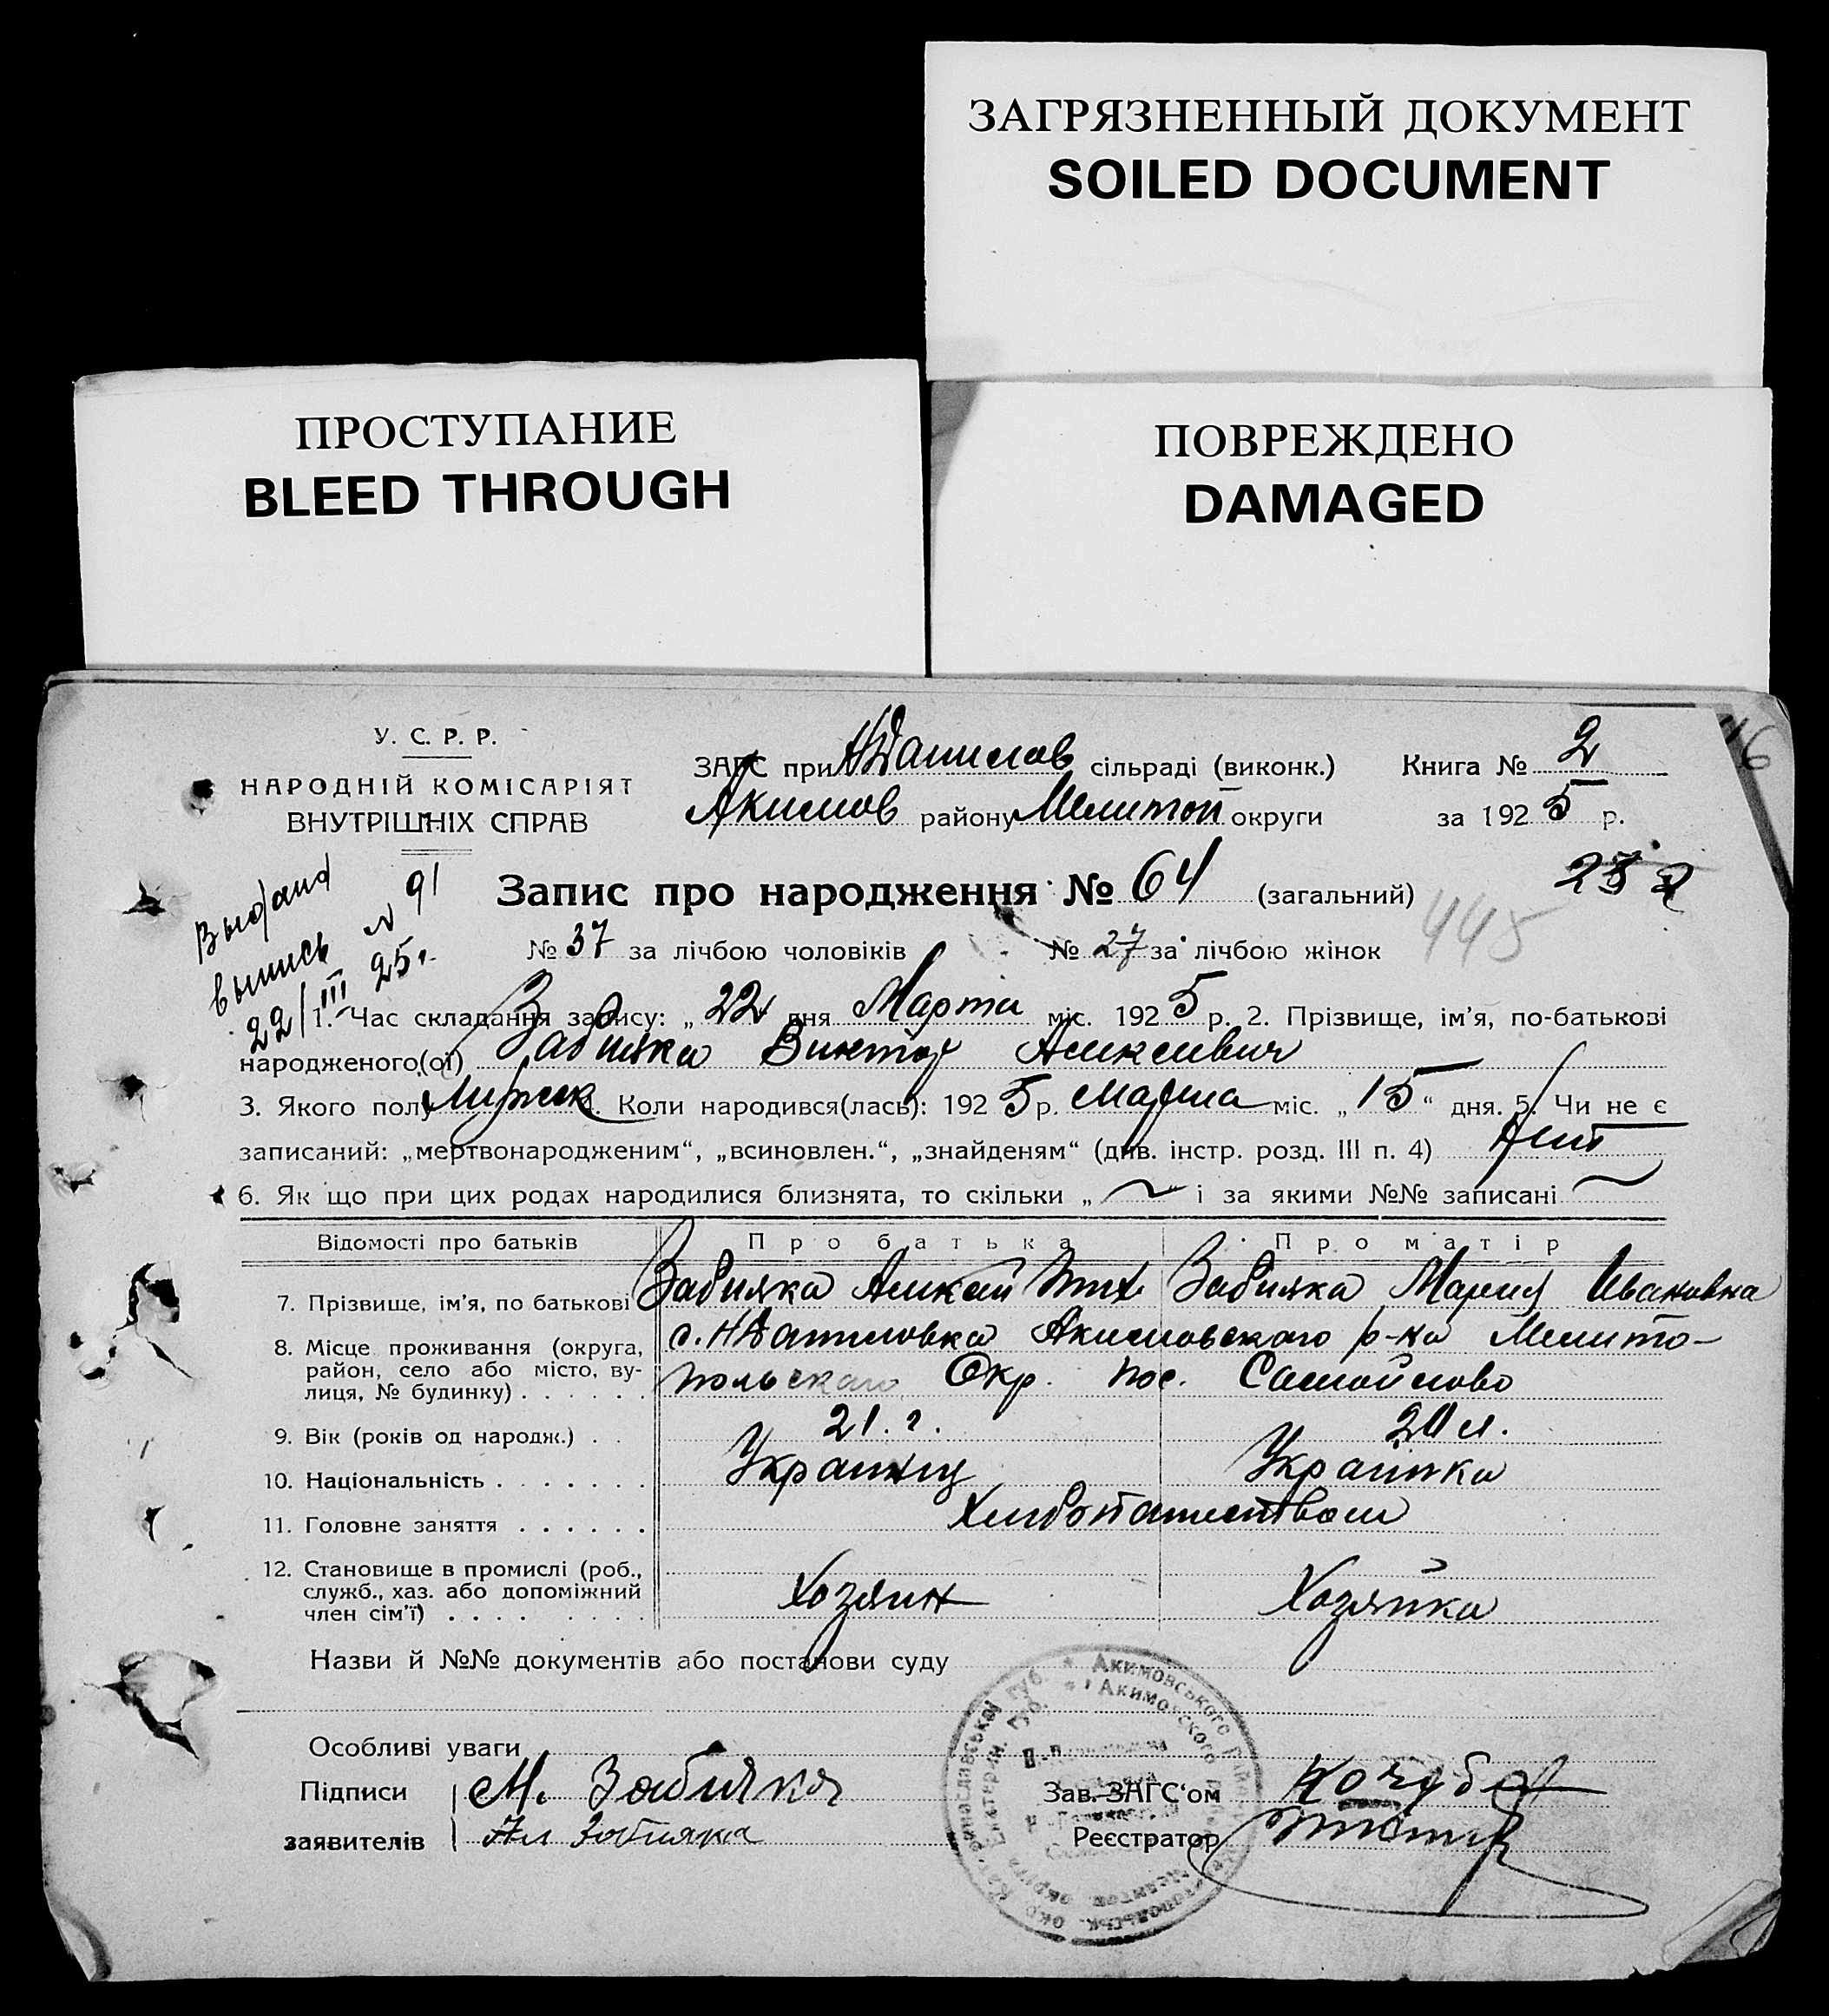 ЗАГРЯЗНЕННЫЙ ДОКУМЕНТ
SOILED DOCUMENT
ПРОСТУПАНИЕ
BLEED THROUGH
ПОВРЕЖДЕНО
DAMAGED
У. С. Р. Р.
НАРОДНІЙ КОМІСАРІЯТ
ВНУТРІШНІХ СПРАВ
ЗАГС при НДанилов сільраді (виконк.)
Акимов району Мелитоп округи
Книга № 2
за 1925 р.
16
Выдана
выпись № 91
22/III 25г.
Запис про народження № 64 (загальний)
445
№ 37 за лічбою чоловіків № 27 за лічбою жінок
1. Час складання запису: „22“ дня Марта міс. 1925 р. 2. Прізвище, ім’я, по-батькові
народженого(ої) Забияка Виктор Алексеевич
3. Якого полу Мужск. Коли народився(лась): 1925 р. марта міс. „15“ дня. 5. Чи не є
записаний: „мертвонародженим“, „всиновлен.“, „знайденям“ (див. інстр. розд. III п. 4) Нет
6. Як що при цих родах народилися близнята, то скільки „~“ і за якими №№ записані ~
Відомості про батьків Про батька Про матір
7. Прізвище, ім’я, по батькові Забияка Алексей Забияка Мария Ивановна
8. Місце проживання (округа, район, село або місто, вулиця, № будинку) . . . . . .
с. НДаниловка Акимовского р-на Мелито-
польского Окр. пос. Самойлово
9. Вік (років од народж.) . . 21.г. 20 л.
10. Національність . . . . . . . Украинец Украинка
11. Головне заняття . . . . . . Хлебопашеством
12. Становище в промислі (роб.,
служб., хаз. або допоміжний
член сім’ї) . . . . . . . . Хозяин Хозяйка
Назви й №№ документів або постанови суду
Особливі уваги
Підписи М. Забияка Зав. ЗАГС‘ом Кочуба
заявителів Ал Забияка Реєстратор